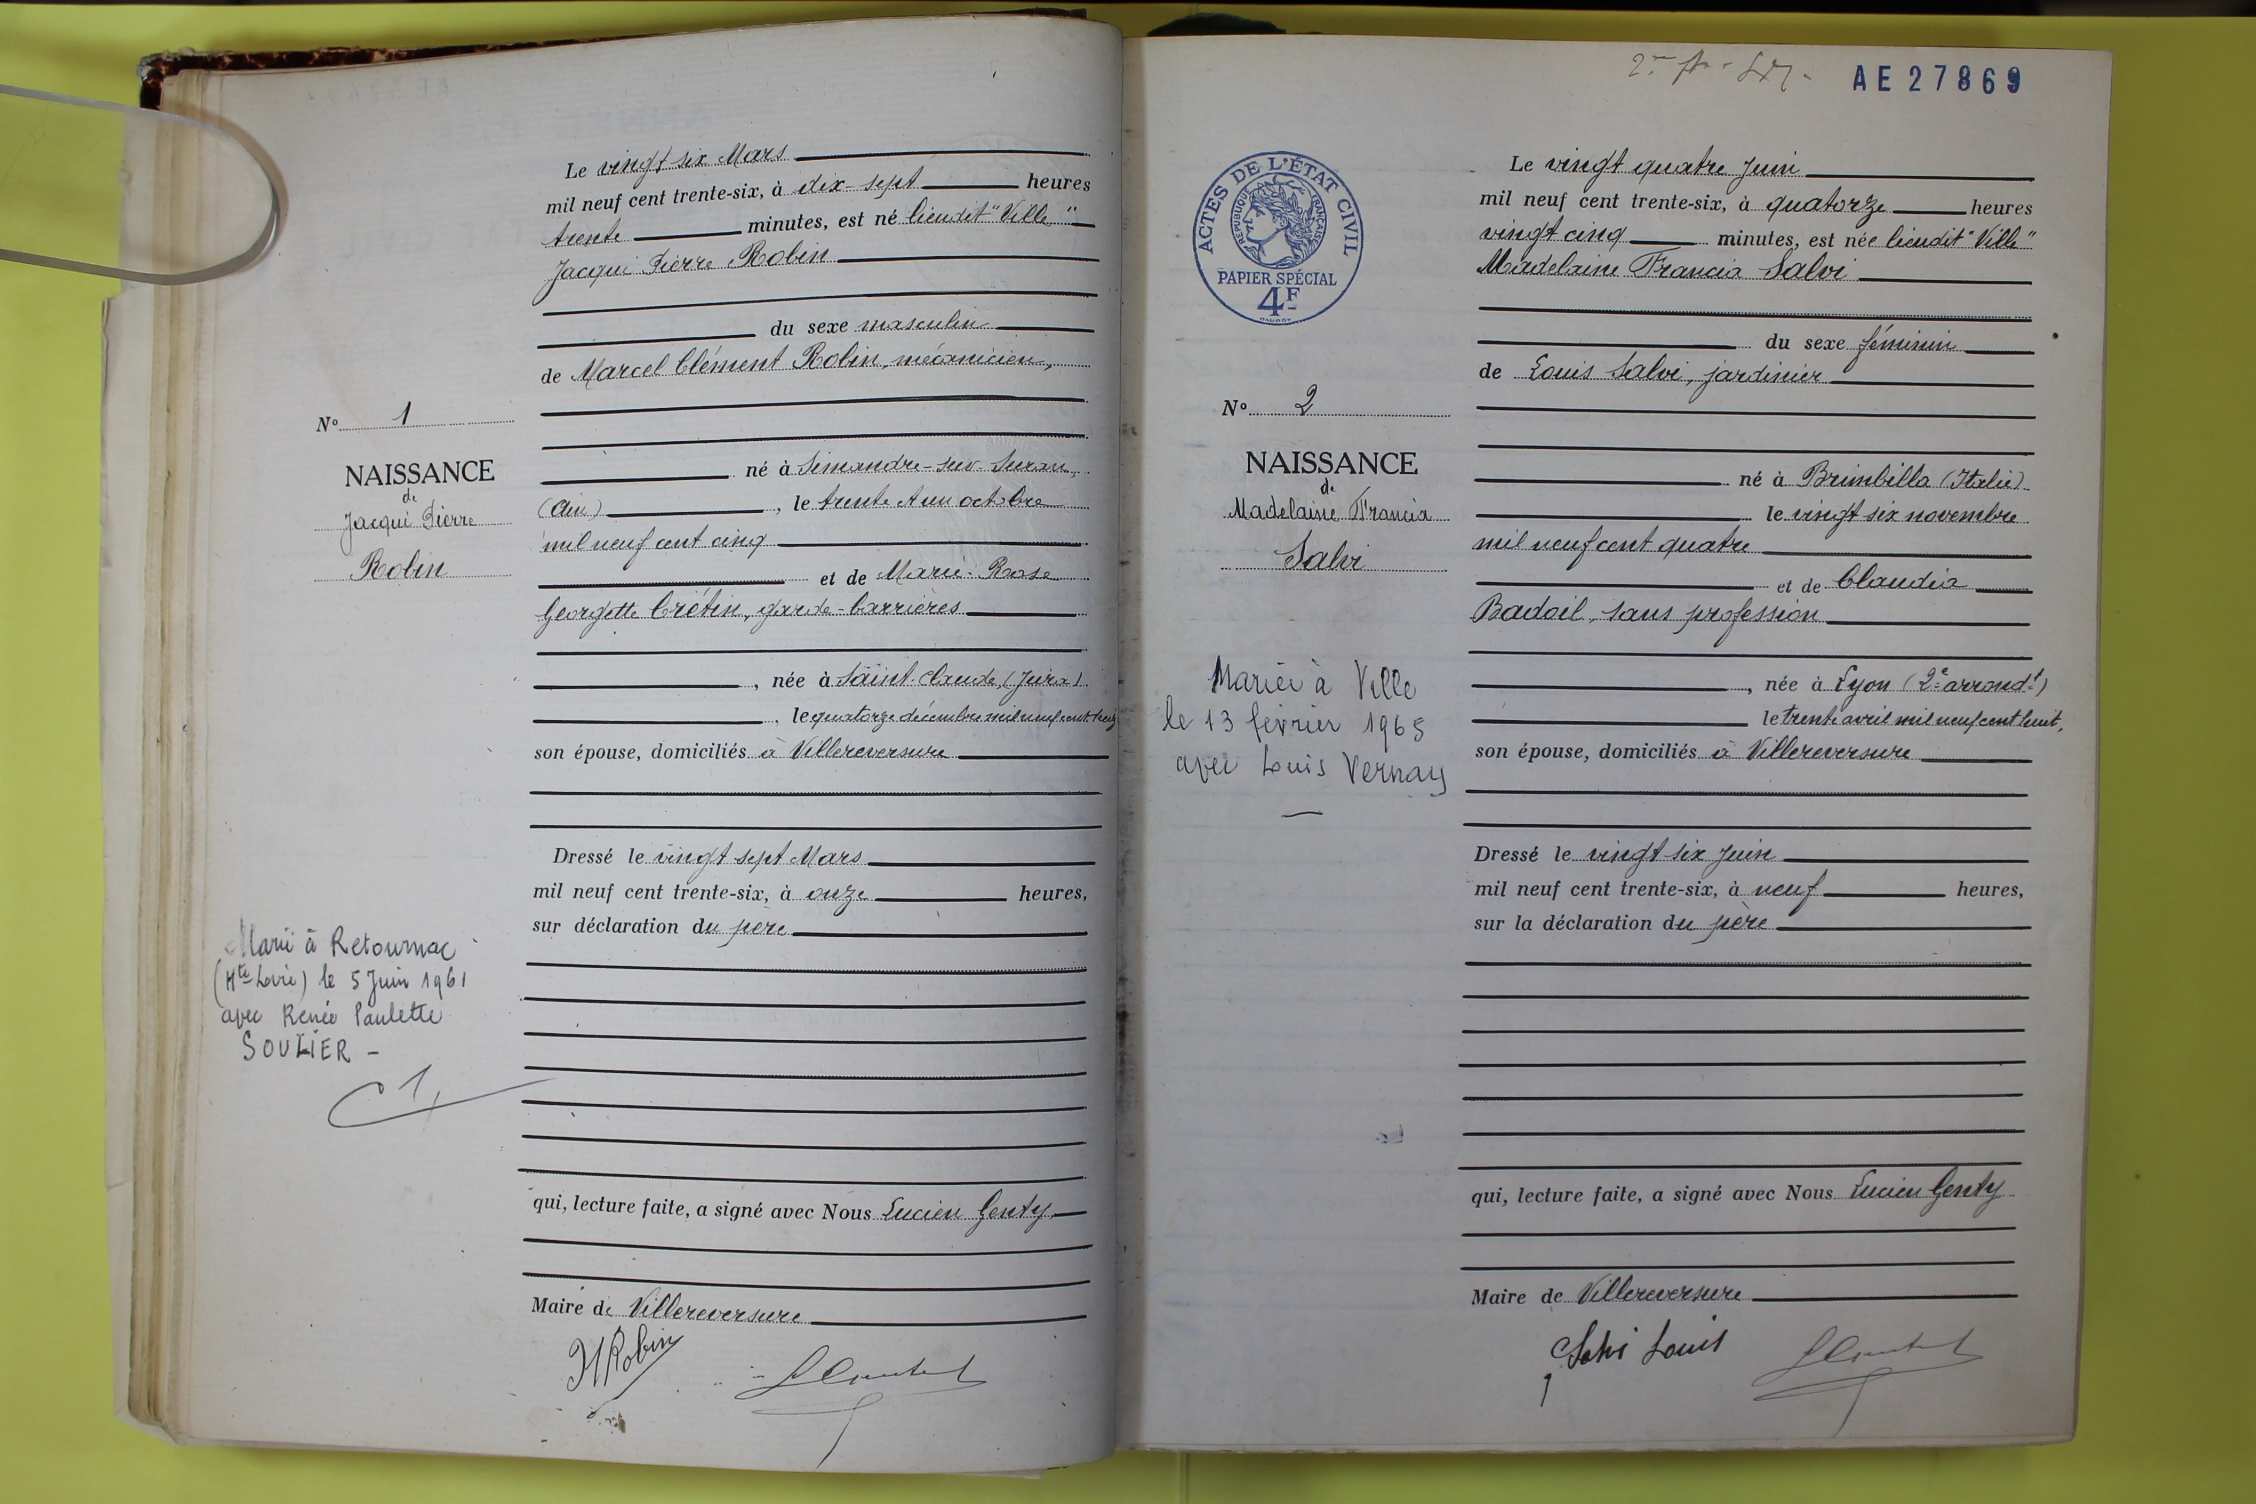 Le vingt six Mars
mil neuf cent trente-six, à dix-sept heures
trente minutes, est né lieudit "Ville"
Jacqui Pierre Robin
du sexe masculin
de Marcel Clément Robin, mécanicien,
né à Simandre-sur-Suran,
(Ain), le trente et un octobre
mil neuf cent cinq
et de Marie-Rose
Georgette Crétin, garde-barrières
, née à Saint-Claude, (Jura)
, le quatorze décembre mil neuf cent
son épouse, domiciliés à Villereversure
Dressé le vingt sept Mars
mil neuf cent trente-six, à onze heures,
sur déclaration du père
qui, lecture faite, a signé avec Nous Lucien Genty
Maire de Villereversure
HRobin
N° 1
NAISSANCE
de
Jacqui Pierre
Robin
Marié à Retournac
(Hte Loire) le 5 Juin 1961
avec Renée Paulette
SOULIER -
AE27869
ACTES DE L'ÉTAT CIVIL
RÉPUBLIQUE FRANÇAISE
PAPIER SPÉCIAL
4F
N° 2
NAISSANCE
de
Madelaine Francia
Salvi
Mariée à Ville
le 13 février 1965
avec Louis Vernay
Le vingt quatre Juin
mil neuf cent trente-six, à quatorze heures
vingt cinq minutes, est née lieudit "Ville"
Madelaine Francia Salvi
du sexe féminin
de Louis Salvi, jardinier
né à Brimbilla (Italie)
le vingt six novembre
mil neuf cent quatre
et de Claudia
Badoil, sans profession
, née à Lyon (2e arrondt)
le trente avril mil neuf cent huit,
son épouse, domiciliés à Villereversure
Dressé le vingt six Juin
mil neuf cent trente-six, à neuf heures,
sur la déclaration du père
qui, lecture faite, a signé avec Nous Lucien Genty
Maire de Villereversure
Salvi Louis